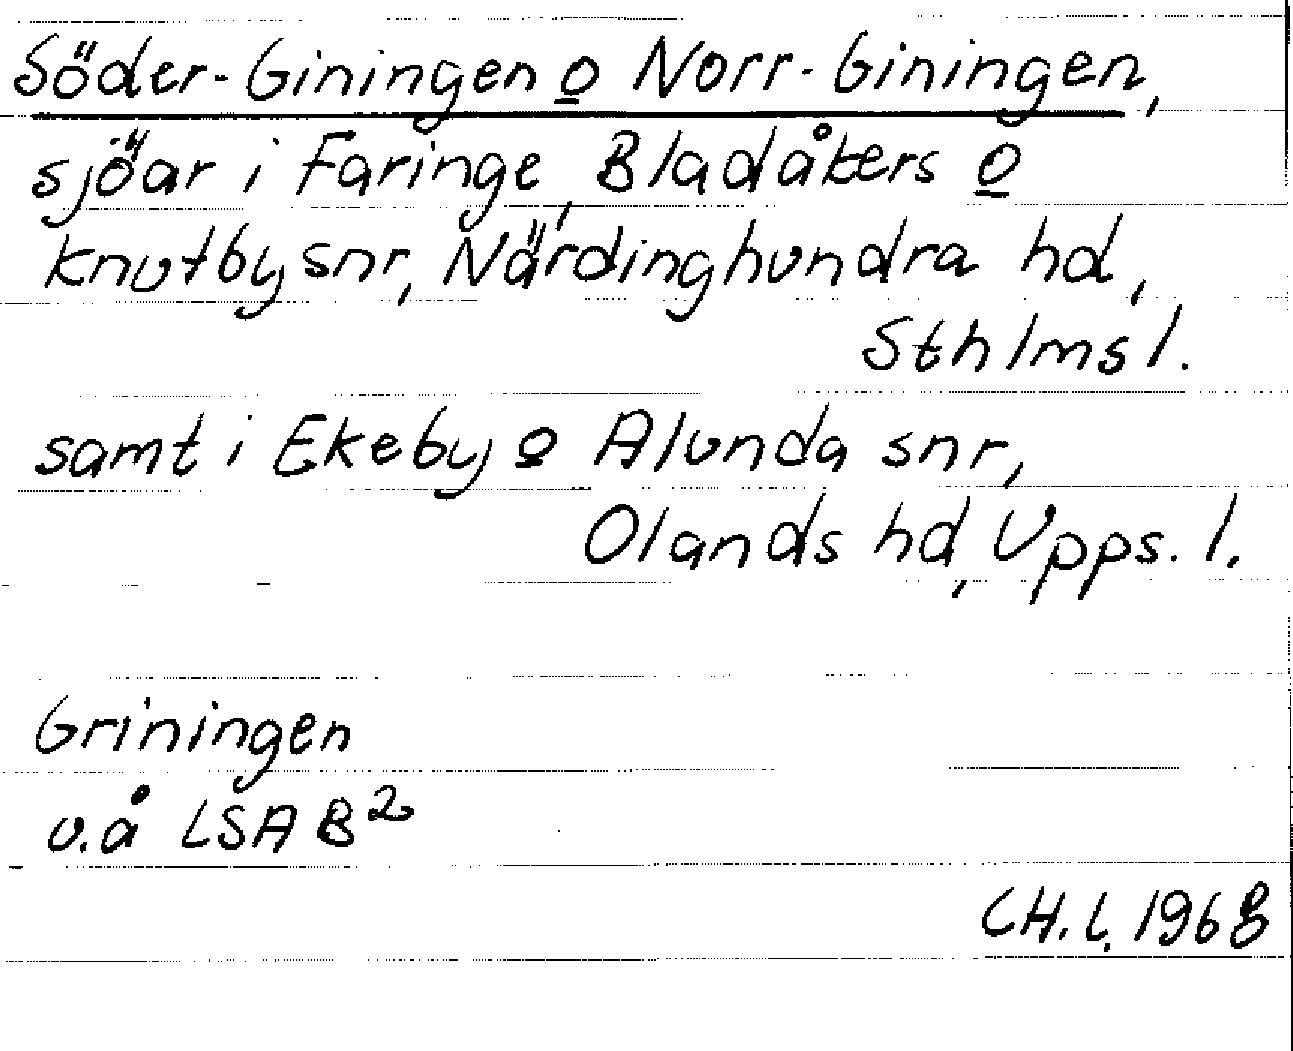 Söder-Giningen o Norr-Giningen,
sjöar i Faringe, Bladåkers o
Knutby snr, Närdinghundra hd,
Sthlms l.
samt i Ekeby o Alunda snr,
Olands hd, Upps. l.
Griningen
u.å LSA B2
CH. l. 1968